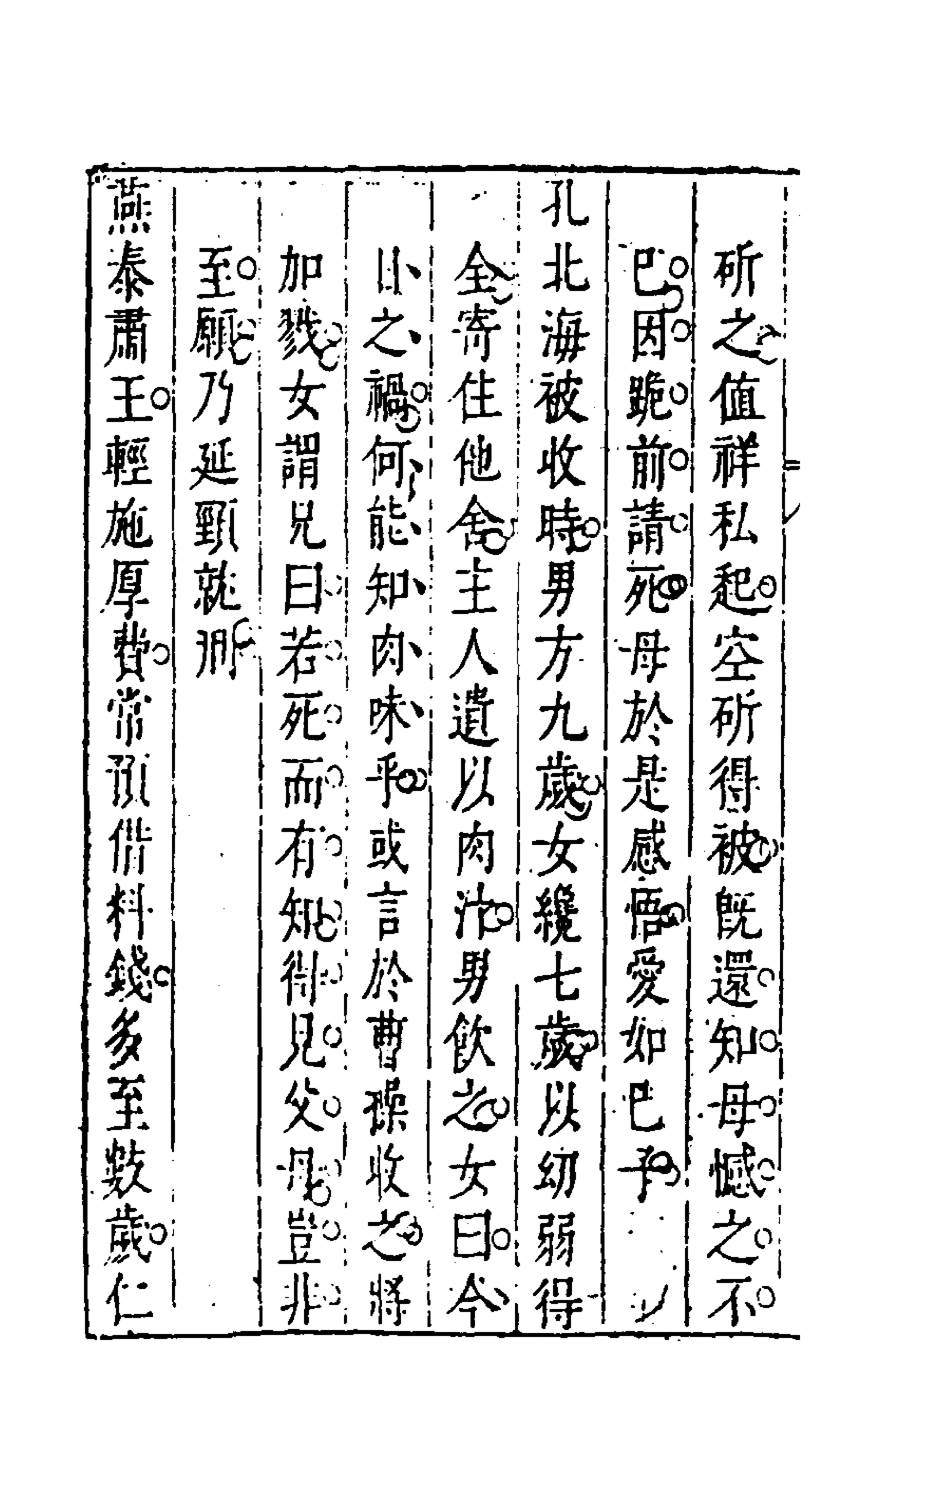 斫之値祥私起空斫得被既還知母憾之不
已因跪前請死母於是感悟愛如己子
孔北海被收時男方九歲女纔七歲以幼弱得
全寄住他舍主人遺以肉汁男飲之女曰今
日之禍何能知肉味乎或言於曹操收之將
加戮女謂兄曰若死而有知得見父母豈非
至願乃延頸就刑
燕泰肅王輕施厚費常預借料錢多至數歲仁